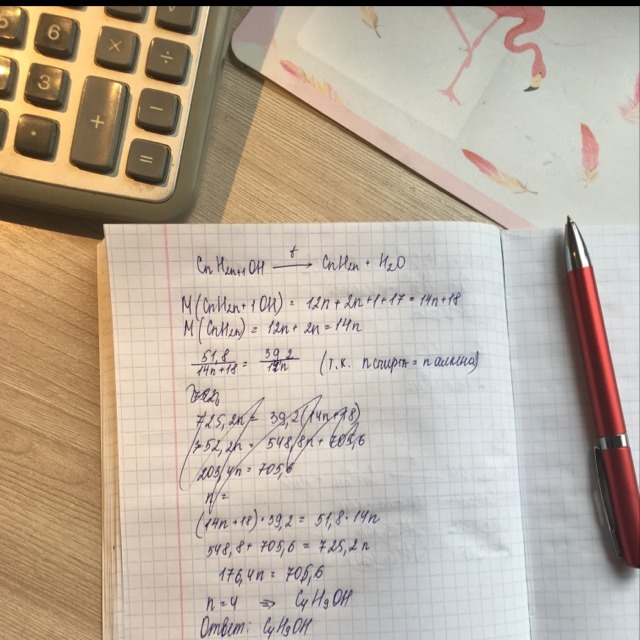 6
×
÷
3
−
.
+
=
CnH2n+1OH —t→ CnH2n + H2O
M(CnH2n+1OH) = 12n+2n+1+17 = 14n+18
M(CnH2n) = 12n + 2n = 14n
51,8/14n+18 = 39,2/14n (т.к. n спирта = n алкена)
725,2n = 39,2(14n+18)
752,2n = 548,8n + 705,6
203,4n = 705,6
n =
(14n+18)·39,2 = 51,8·14n
548,8 + 705,6 = 725,2n
176,4n = 705,6
n = 4 ⇒ C4H9OH
Ответ: C4H9OH